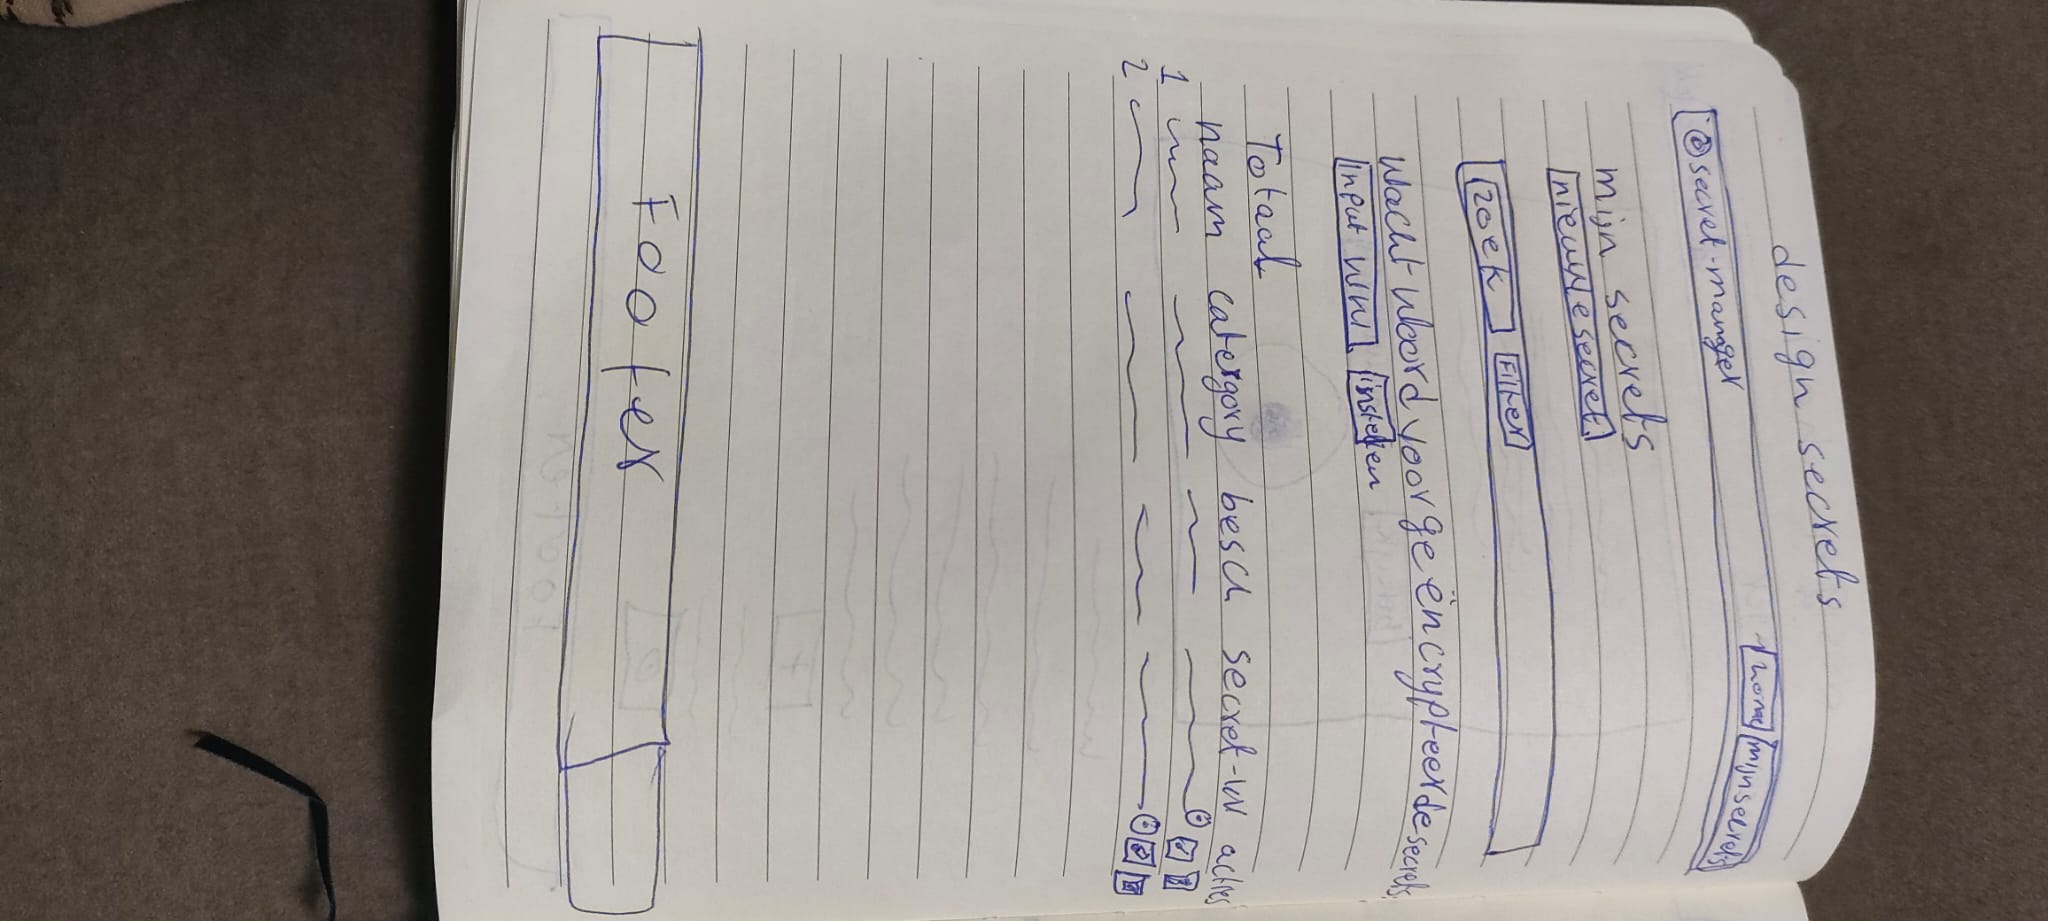 design secrets
secret-manger home mijnsecrets
mijn secrets
nieuwe secret
zoek Filter
Wachtwoord voor geëncrypteerde secrets
input WW instellen
Totaal
naam catergory besch secret-W acties
1
2
Footer